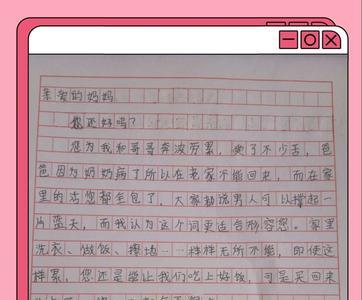 亲爱的妈妈
您还好吗？
您为我和哥哥奔波劳累，受了不少苦，爸
爸因为奶奶病了所以在老家不能回来，而在家
里的活您都全包了，大家都说男人可以撑起一
片蓝天，而我认为这个词更适合形容您。家里
洗衣、做饭、擦地……样样无所不能，即使这
样累，您还是能让我们吃上好饭，可是买回来